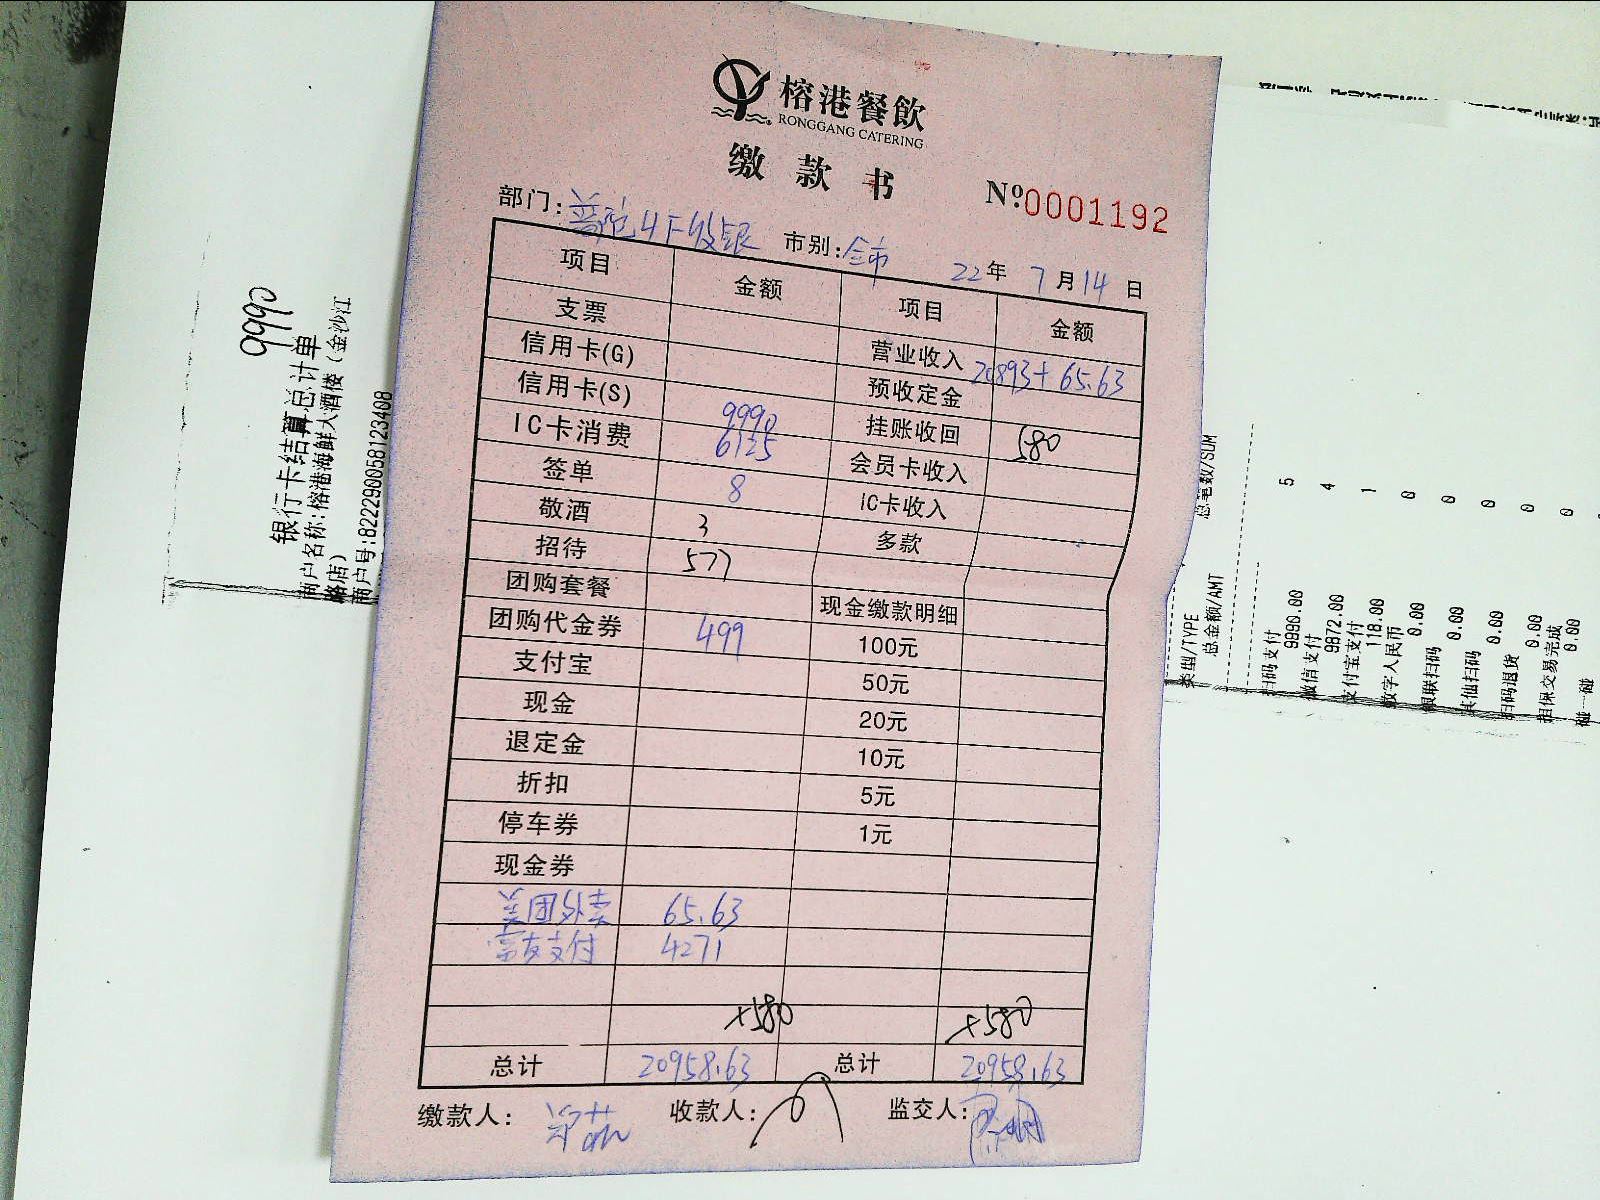 榕港餐飲
RONGGANG CATERING
缴款书
Nº0001192
部门:普陀4F收银 市别:全市 22年7月14日
项目 金额 项目 金额
支票 营业收入 20893+65.63
信用卡(G) 预收定金
信用卡(S) 9990 挂账收回 580
IC卡消费 6125 会员卡收入
签单 8 IC卡收入
敬酒 3 多款
招待 577
团购套餐 现金缴款明细
团购代金券 499 100元
支付宝 50元
现金 20元
退定金 10元
折扣 5元
停车券 1元
现金券
美团外卖 65.63
支付 4271
+580 +580
总计 20958.63 总计 20958.63
缴款人: 收款人: 监交人:
9990
银行卡结算总计单
商户名称:榕港海鲜大酒楼(金沙江
路店)
商户号:822290058123408
类型/TYPE 总笔数/SUM
总金额/AMT
扫码支付 5
9990.00
微信支付 4
9872.00
支付宝支付 1
118.00
数字人民币 0
0.00
银联扫码 0
0.00
其他扫码 0
0.00
扫码退货 0
0.00
担保交易完成 0
0.00
碰一碰